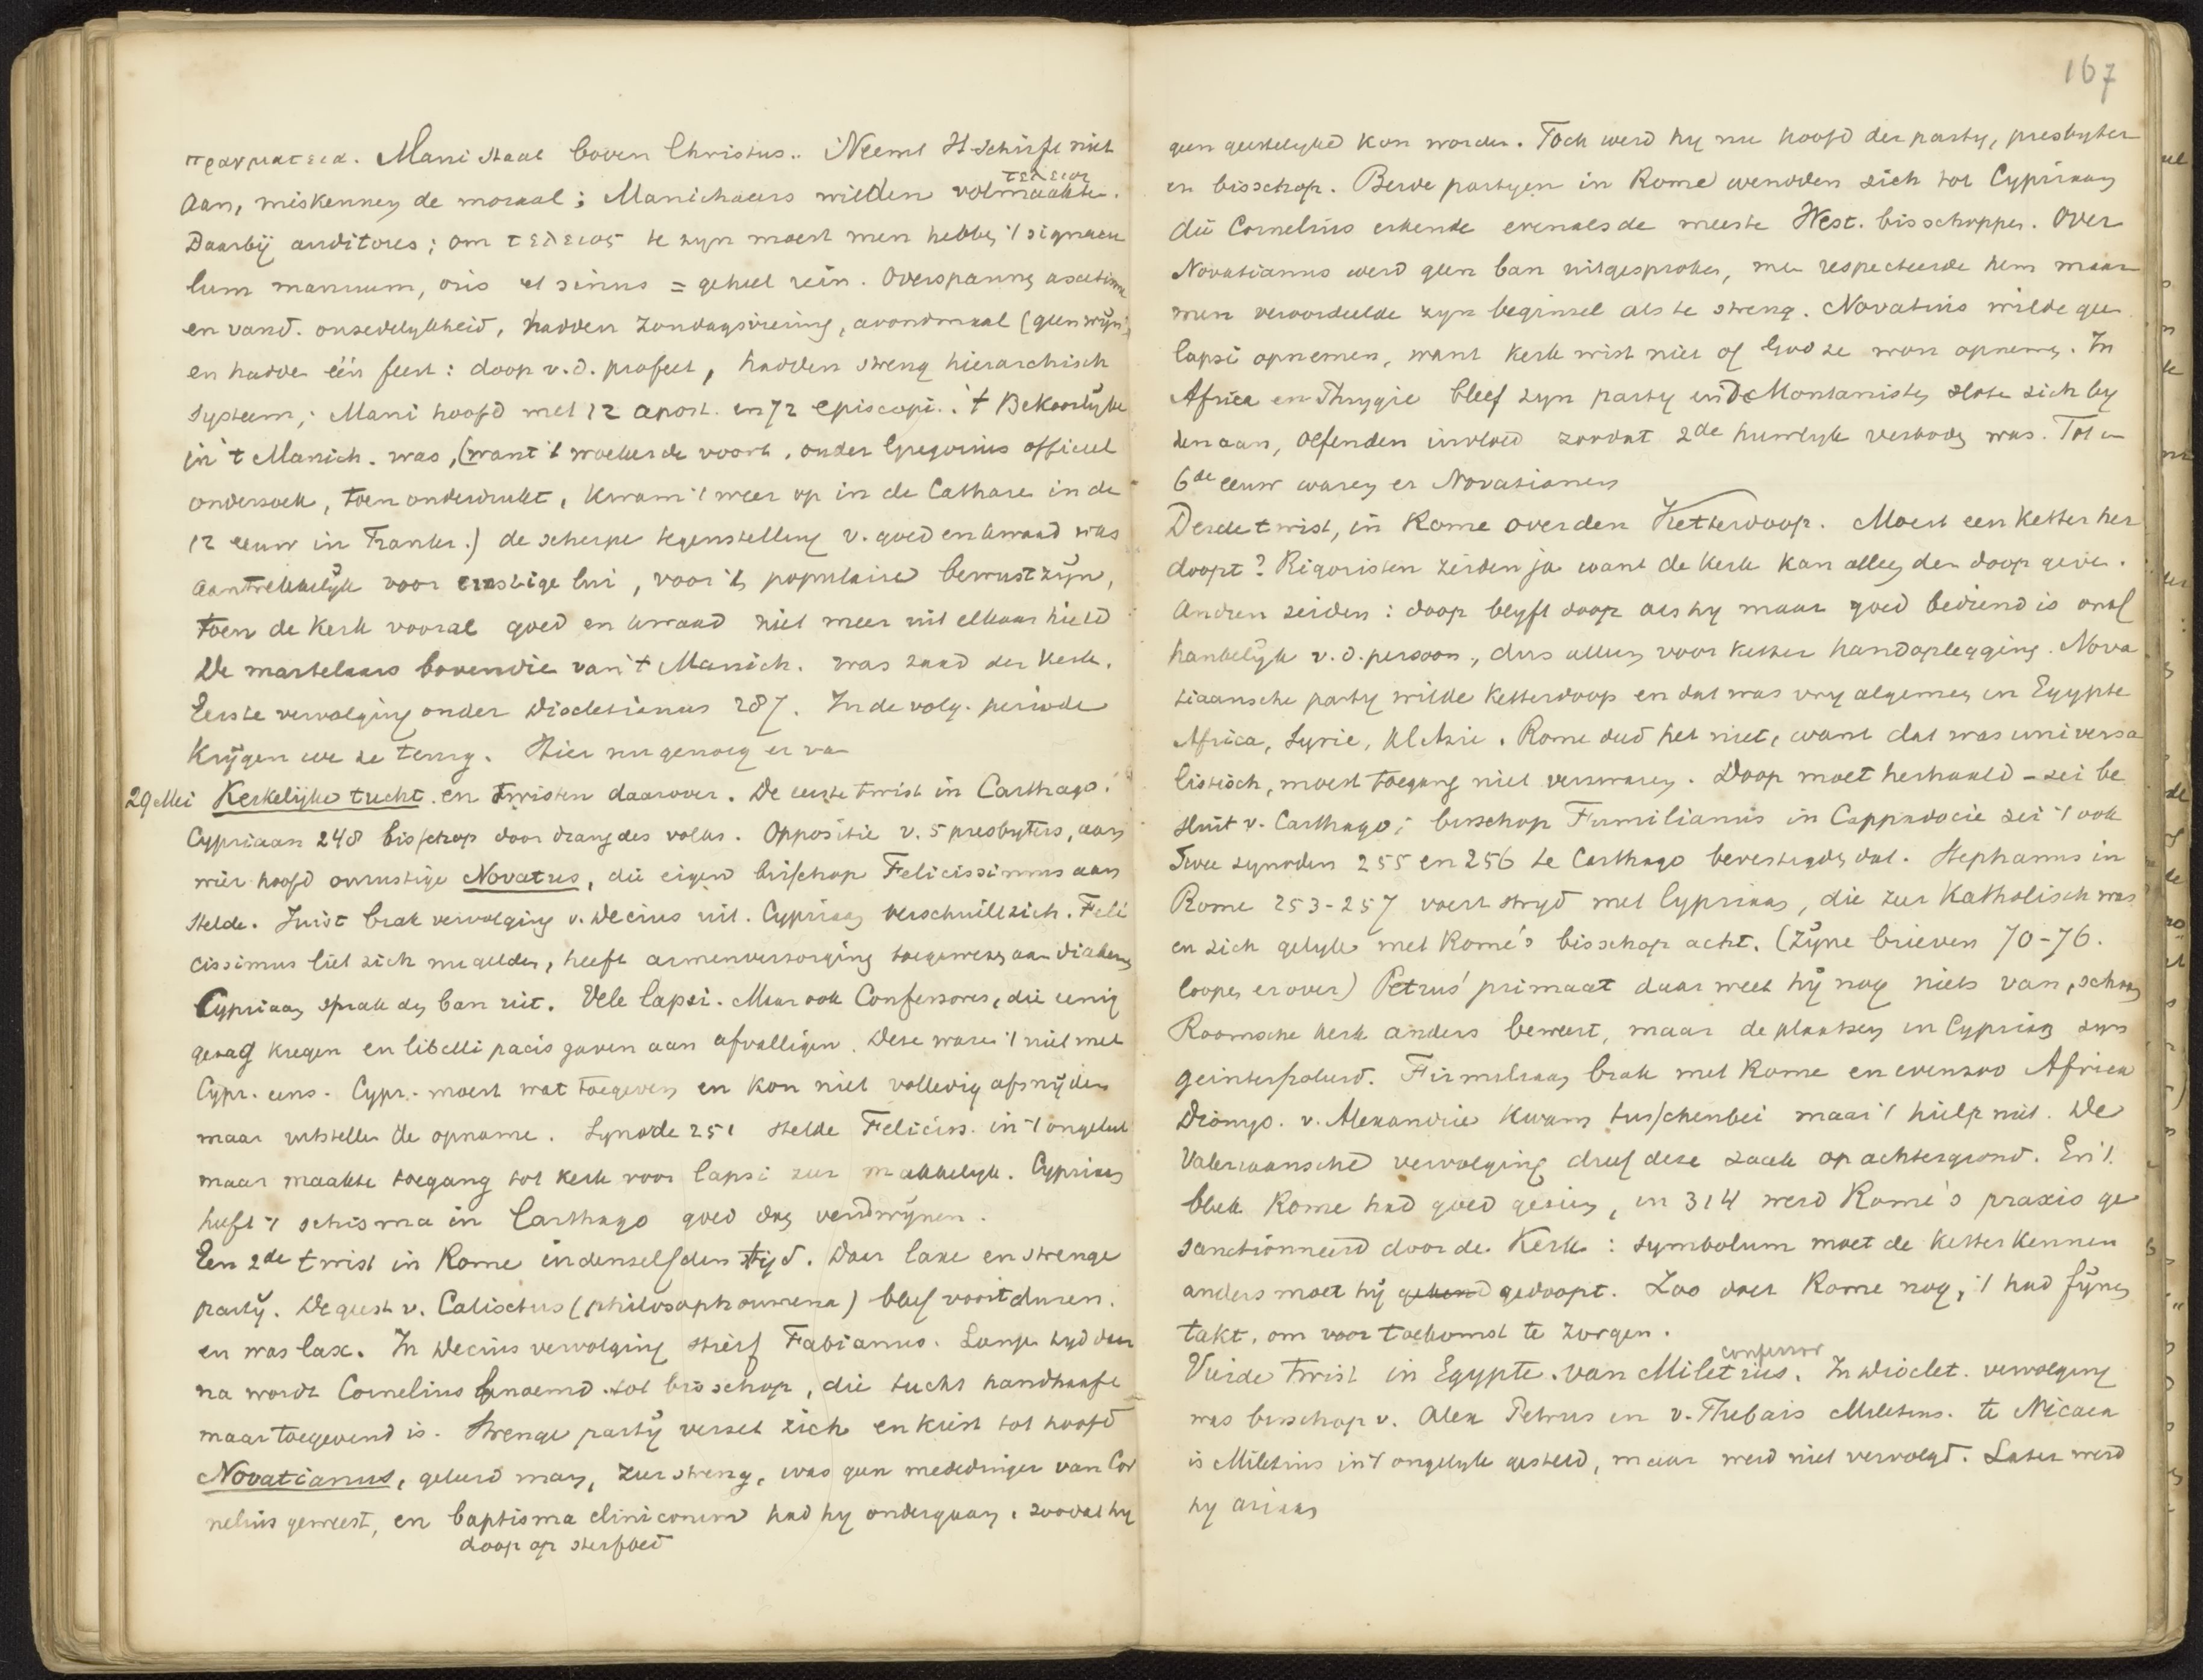 πραγματεια. Mani staat boven Christus. Neemt H. Schrift niet
τελειοι
aan, miskennen de moraal; Manichaeers wilden volmaakte.
Daarbij auditores; om τελειος te zyn moest men hebben 't signacu
lum manuum, oris et sinus = geheel rein. Overspanning ascetisme
en vand. onzedelykheid, hadden Zondagsviering, avondmaal (geen wijn)
en hadden één feest: doop v.d. profeet, hadden streng hierarchisch
systeem; Mani hoofd met 12 apost. en 72 episcopi. 't Bekoorlyke
in 't Manich. was, (want 't woekerde voort, onder Gregorius officieel
onderzoek, toen onderdrukt, kwam 't weer op in de Catharen in de
12 eeuw in Frankr.) de scherpe tegenstelling v. goed en kwaad was
aantrekkelijk voor ernstige lui, voor 't populaire bewustzijn,
toen de Kerk vooral goed en kwaad niet meer uit elkaar hield
De martelaars bovendie van 't Manich. was zaad der Kerk.
Eerste vervolging onder Diocletianus 287. In de volg. periode
Krijgen we ze terug. Hier nu genoeg er va
29 Mei Kerkelijke tucht en twisten daarover. De eerste twist in Carthago.
Cypriaan 248 bisschop door drang des volks. Oppositie v. 5 presbyters, aan
wier hoofd onrustige Novatus, die eigen bisschop Felicissimus aan
stelde. Juist brak vervolging v. Decius uit. Cypriaan verschuilt zich. Feli
cissimus liet zich nu gelden, heeft armenverzorging toegewezen aan diakens
Cypriaan sprak den ban uit. Vele lapsi. Maar ook Confessores, die eenig
gezag kregen en libelli pacis gaven aan afvalligen. Deze waren 't niet met
Cypr. eens. Cypr. moest wat toegeven en kon niet volledig afsnyden
maar uitstellen de opname. Synode 251 stelde Feliciss. in 't ongelyk
maar maakte toegang tot kerk voor lapsi zeer makkelyk. Cypriaan
heeft 't schisma in Carthago goed doen verdwijnen.
Een 2de twist in Rome in denzelfden tijd. Daar laxe en strenge
party. De geest v. Calisctus (philosophoumena) bleef voortduren.
en was lax. In Decius vervolging stierf Fabianus. Lange tyd daar
na wordt Cornelius benoemd tot bisschop, die tucht handhaaft
maar toegevend is. Strenge partij verzet zich en kiest tot hoofd
Novatianus, geleerd man, zeer streng, was geen mededinger van Cor
nelius geweest, en baptisma clinicorum had hy ondergaan, zoodat hy
doop op sterfbed
167
geen geestelyke kon worden. Toch werd hy nu hoofd der party, presbyter
en bisschop. Beide partyen in Rome wendden zich tot Cypriaan
die Cornelius erkende evenals de meeste West. bisschoppen. Over
Novatianus werd geen ban uitgesproken, men respecteerde hem maar
men veroordeelde zyn beginsel als te streng. Novatius wilde geen
lapsi opnemen, want Kerk wist niet of God ze wou opnemen. In
Africa en Phrygie bleef zyn party en De Montanisten sloten zich by
den aan, oefenden invloed zoodat 2de huwelyk verboden was. Tot in
6de eeuw waren er Novatianen
Derde twist, in Rome over den Ketterdoop. Moest een ketter her
doopt? Rigoristen zeiden ja want de Kerk kan alleen den doop geven.
Andren zeiden: doop blyft doop als hy maar goed bediend is onaf
hankelijk v.d. persoon, dus alleen voor ketter handoplegging. Nova
tiaansche party wilde ketterdoop en dat was vry algemeen in Egypte
Africa, Syrie, Kl Azie. Rome deed het niet, want dat was universa
listisch, moest toegang niet verzwaren. Doop moet herhaald – zei be
sluit v. Carthago; bisschop Firmilianus in Cappadocie zei 't ook
Twee synoden 255 en 256 te Carthago bevestigden dat. Stephanus in
Rome 253-257 voert stryd met Cypriaan, die zeer Katholisch was
en zich gelyk met Rome's bisschop acht. (Zijne brieven 70-76.
loopen er over) Petrus' primaat daar weet hij nog niets van, schoon
Roomsche Kerk anders beweert, maar de plaatsen in Cypriaan zyn
geinterpoleerd. Firmiliaan brak met Rome en evenzoo Africa
Dionys. v. Alexandrie kwam tusschenbei maar 't hielp niet. De
Valeriaansche vervolging dreef deze zaak op achtergrond. En 't
bleek Rome had goed gezien, in 314 werd Rome's praxis ge
sanctionneerd door de Kerk: symbolum moet de ketter kennen
anders moet hij gedoopt. Zoo doet Rome nog, 't had fijnen
takt, om voor toekomst te zorgen.
confessor
Vierde twist in Egypte van Miletius. In Dioclet. vervolging
was bisschop v. Alex Petrus en v. Thebais Miletius. te Nicaea
is Miletius in 't ongelyk gesteld, maar werd niet vervolgd. Later werd
hy ariaan